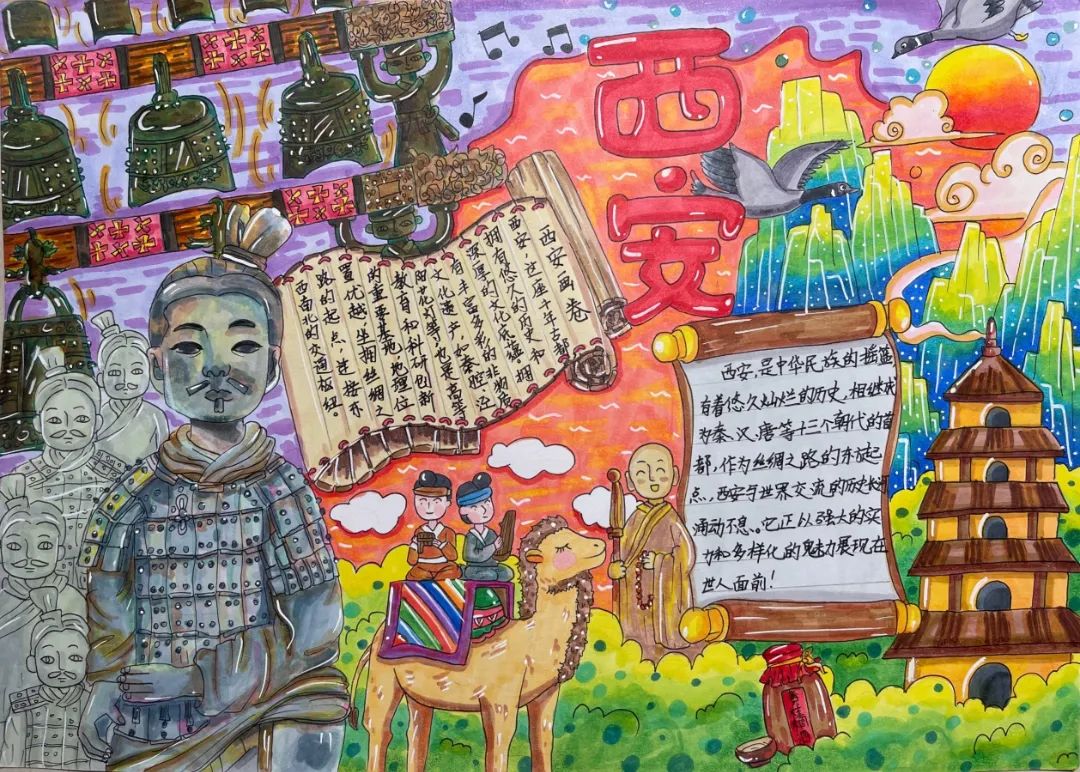 西安
西安画卷
西安，这座千年古都
拥有悠久的历史和
深厚的文化底蕴，拥
有丰富多彩的非物质
文化遗产，如秦腔，还
花灯等，也是高等
教育和科研创新
的重要基地，地理位
置优越，坐拥丝绸之
路的起点，连接东
西南北的交通枢纽
西安，是中华民族的摇篮
有着悠久灿烂的历史，相继成
为秦、汉、唐等十三个朝代的首
都，作为丝绸之路的东方起
点，西安与世界交流的历史长河
涌动不息。它正以强大的实
力和多样化的魅力展现在
世人面前！